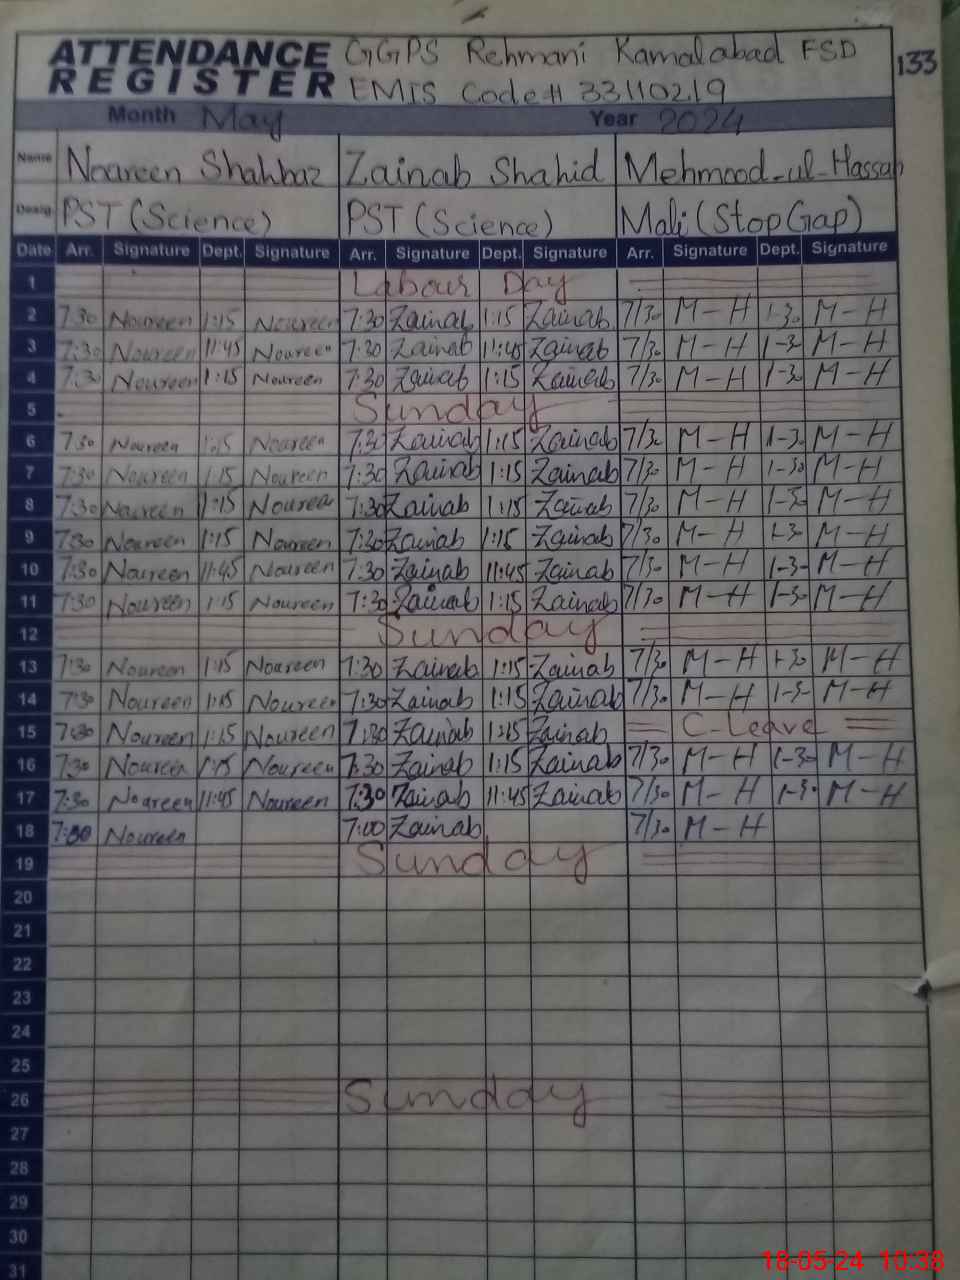 ATTENDANCE GGPS Rehmani Kamalabad FSD
REGISTER EMIS Code# 33110219
133
Month May Year 2024
Name Noureen Shahbaz Zainab Shahid Mehmood-ul-Hassan
Desig. PST (Science) PST (Science) Mali (Stop Gap)
Date Arr. Signature Dept. Signature Arr. Signature Dept. Signature Arr. Signature Dept. Signature
1 Labour Day
2 7:30 Noureen 1:15 Noureen 7:30 Zainab 1:15 Zainab 7/30 M-H 1-30 M-H
3 7:30 Noureen 11:45 Noureen 7:30 Zainab 11:45 Zainab 7/30 M-H 1-30 M-H
4 7:30 Noureen 1:15 Noureen 7:30 Zainab 1:15 Zainab 7/30 M-H 1-30 M-H
5 Sunday
6 7:30 Noureen 1:15 Noureen 7:30 Zainab 1:15 Zainab 7/30 M-H 1-30 M-H
7 7:30 Noureen 1:15 Noureen 7:30 Zainab 1:15 Zainab 7/30 M-H 1-30 M-H
8 7:30 Noureen 1:15 Noureen 7:30 Zainab 1:15 Zainab 7/30 M-H 1-30 M-H
9 7:30 Noureen 1:15 Noureen 7:30 Zainab 1:15 Zainab 7/30 M-H 1-30 M-H
10 7:30 Noureen 11:45 Noureen 7:30 Zainab 11:45 Zainab 7/30 M-H 1-30 M-H
11 7:30 Noureen 1:15 Noureen 7:30 Zainab 1:15 Zainab 7/30 M-H 1-30 M-H
12 Sunday
13 7:30 Noureen 1:15 Noureen 7:30 Zainab 1:15 Zainab 7/30 M-H 1-30 M-H
14 7:30 Noureen 1:15 Noureen 7:30 Zainab 1:15 Zainab 7/30 M-H 1-30 M-H
15 7:30 Noureen 1:15 Noureen 7:30 Zainab 1:15 Zainab C-Leave
16 7:30 Noureen 1:15 Noureen 7:30 Zainab 1:15 Zainab 7/30 M-H 1-30 M-H
17 7:30 Noureen 11:45 Noureen 7:30 Zainab 11:45 Zainab 7/30 M-H 1-30 M-H
18 Noureen 7:00 Zainab 7/30 M-H
19 Sunday
20
21
22
23
24
25
26 Sunday
27
28
29
30
31
18-05-24 10:38